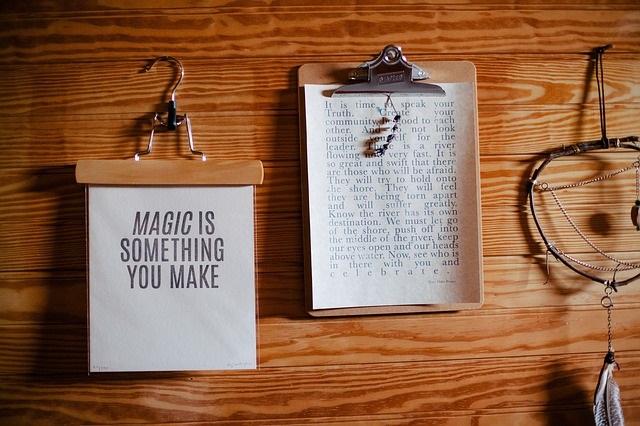 MAGIC IS
SOMETHING
YOU MAKE
It is time speak your
Truth. Create your
community. good to each
other. not look
outside for the
leader. a river
flowing very fast. It is
so great and swift that there
are those who will be afraid.
They will try to hold onto
the shore. They will feel
they are being torn apart
and will suffer greatly.
Know the river has its own
destination. We must let go
of the shore, push off into
the middle of the river, keep
our eyes open and our heads
above water. Now, see who is
in there with you and
celebrate.